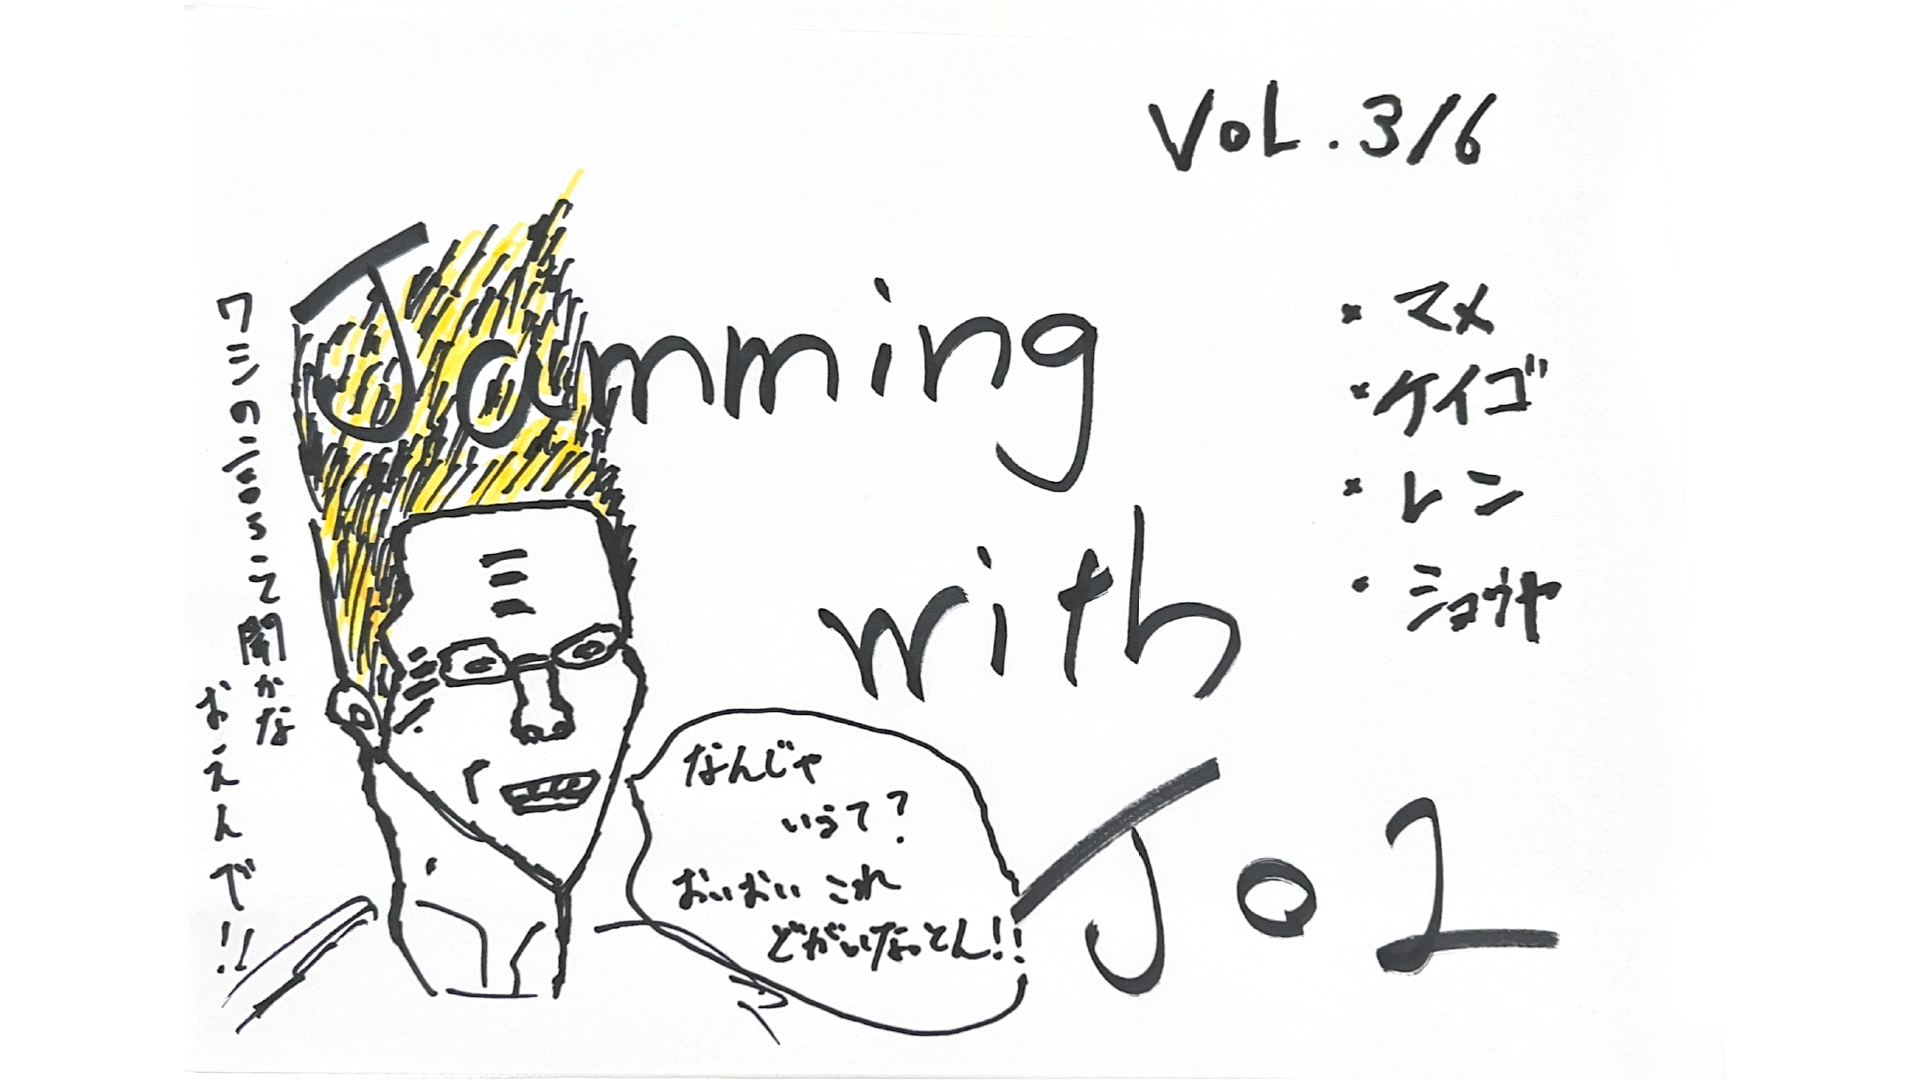 VoL.3/6
Jamming
with
Jo1
・マメ
・ケイゴ
・レン
・ショウヤ
ワシの
聞かな
おえんで!!
なんじゃ
いうて?
おいおい これ
どがいなっとん!!